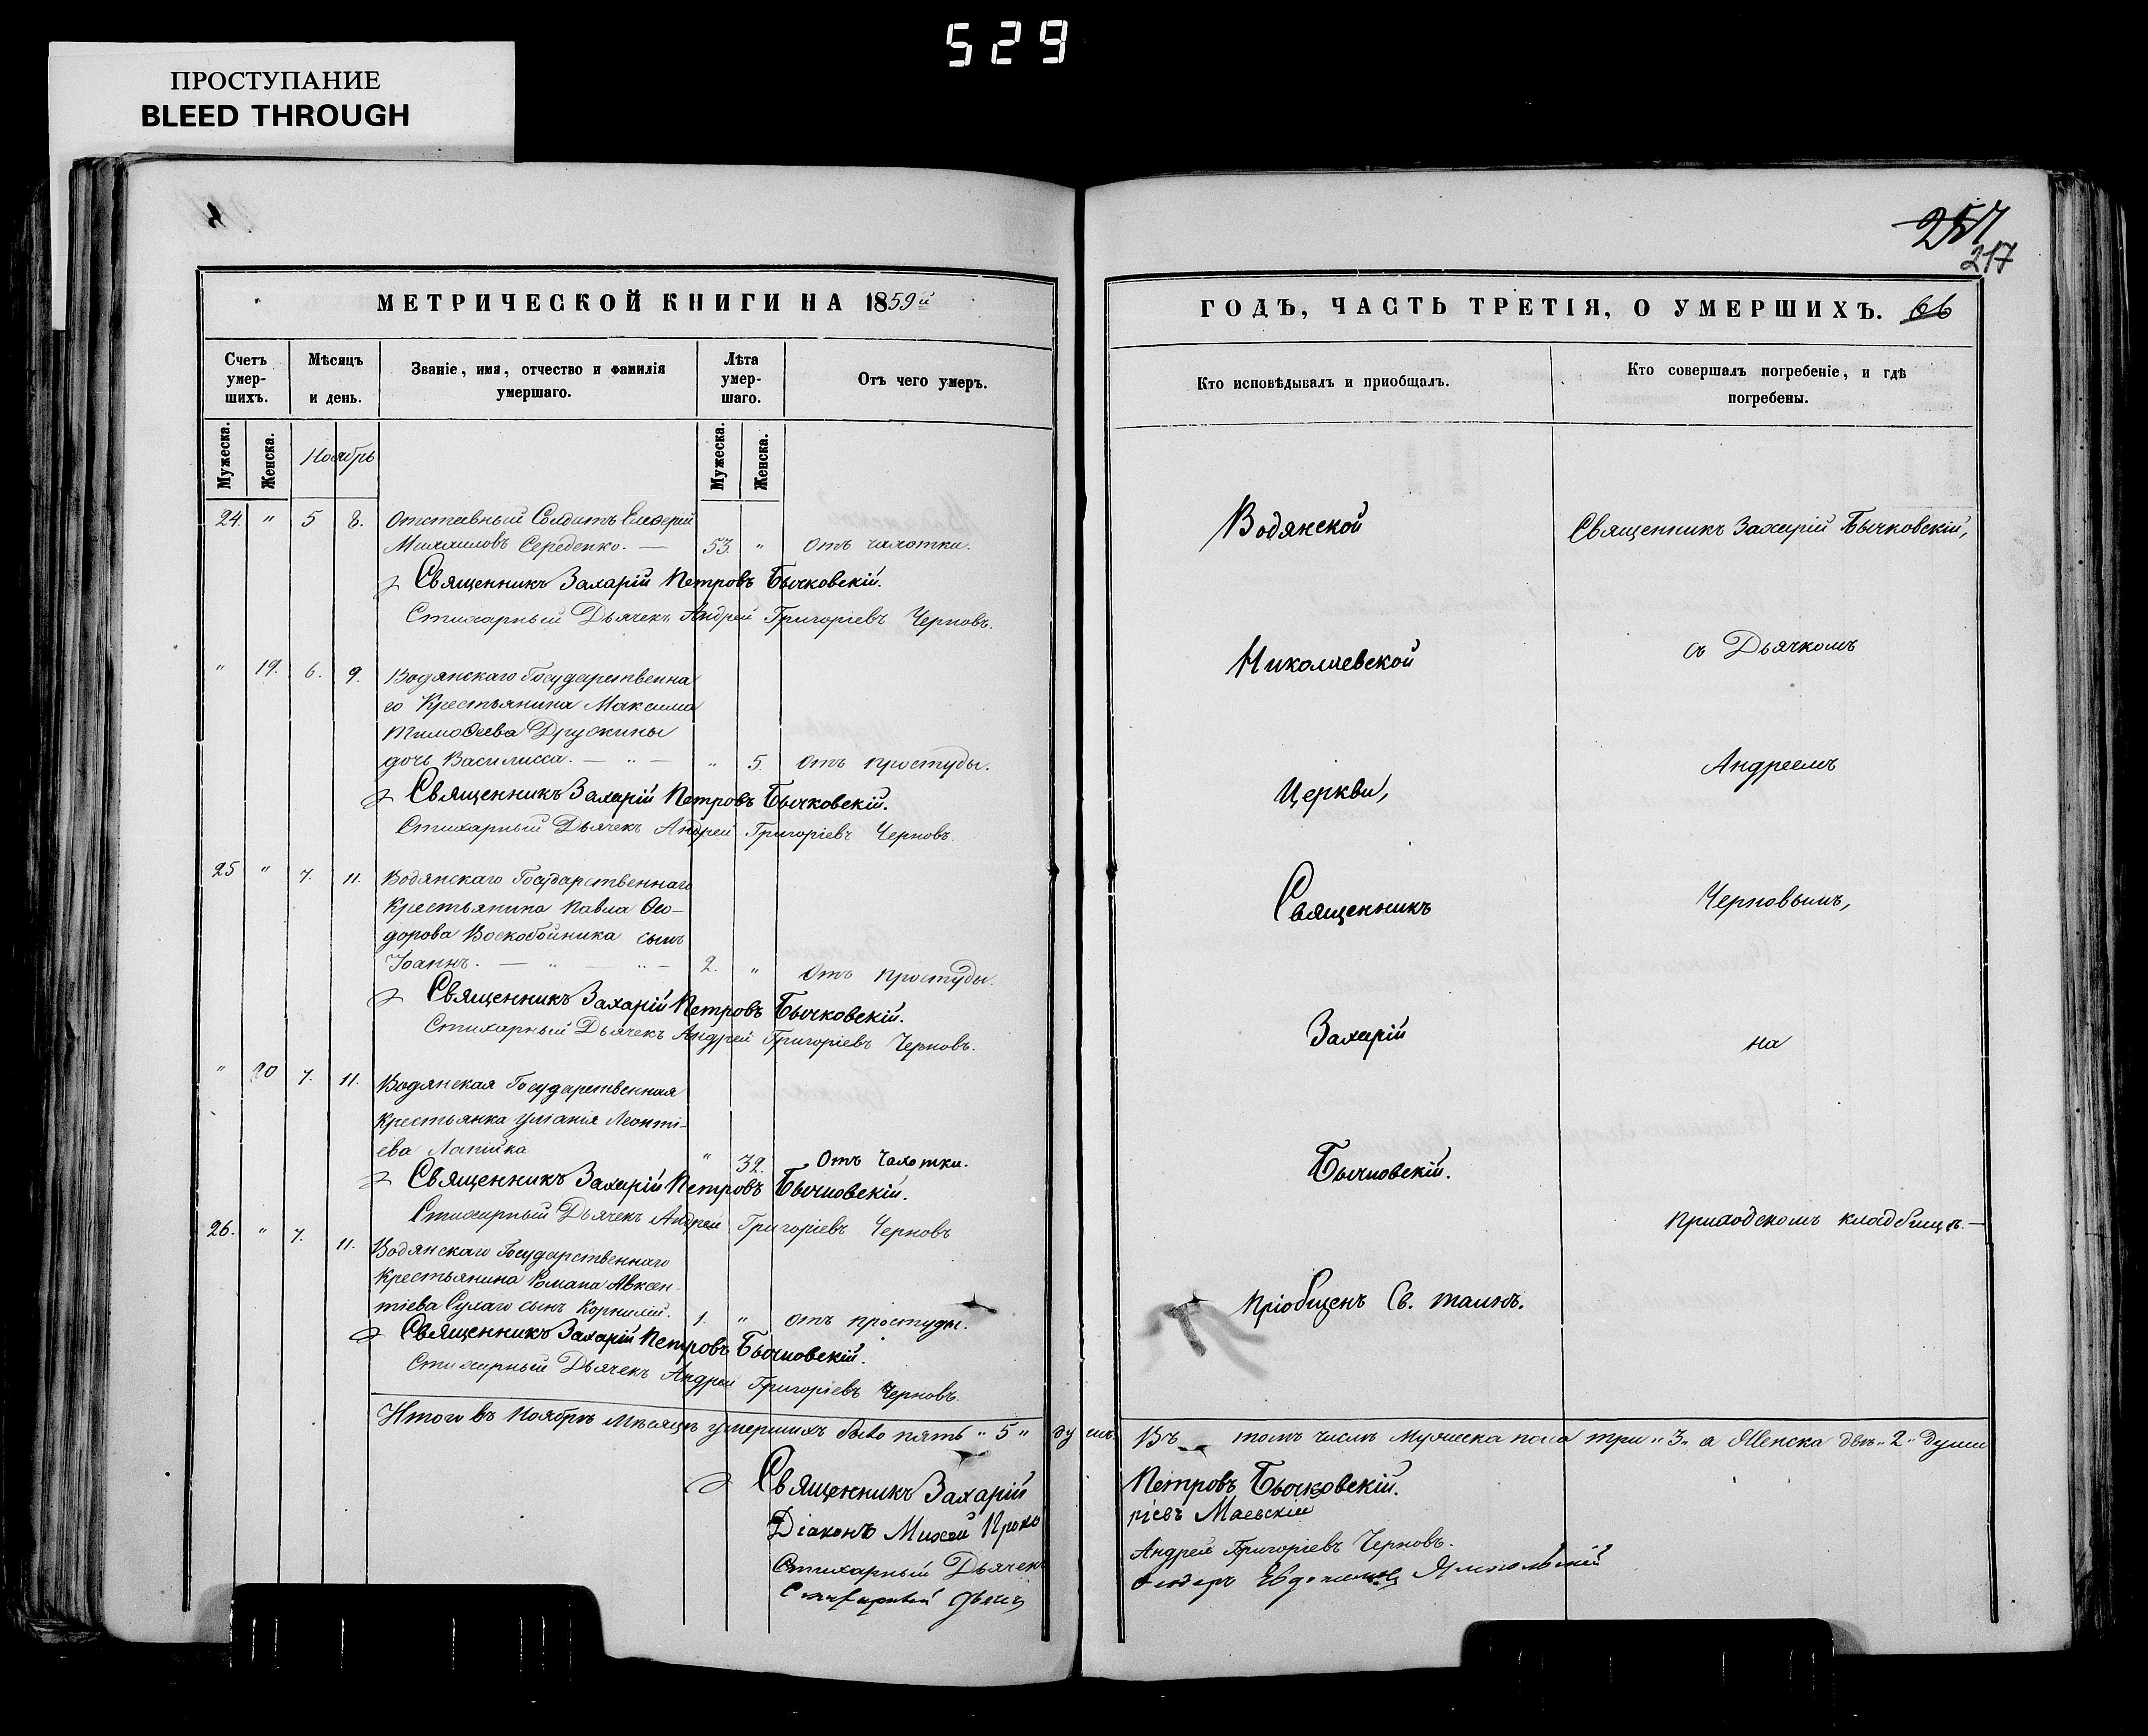 529
ПРОСТУПАНИЕ
BLEED THROUGH
257
217
МЕТРИЧЕСКОЙ КНИГИ НА 1859й
ГОДЪ, ЧАСТЬ ТРЕТІЯ, О УМЕРШИХЪ. 66
Счетъ умер-шихъ.
Мѣсяцъ и день.
Званіе, имя, отчество и фамилія умершаго.
Лѣта умер-шаго.
Отъ чего умеръ.
Мужеска. Женска.
Ноябрь
Мужеска. Женска.
24. " 5 8. Отставный Солдатъ Елеѳерій
Михаиловъ Середенко. — 53. " Отъ чахотки.
Священникъ Захарій Петровъ Бычковскій.
Стихарный Дьячекъ Андрей Григоріевъ Черновъ.
" 19. 6. 9. Водянскаго Государственна
го Крестьянина Максима
Тимоѳеева Дружины
дочь Василисса. — " — " 5. Отъ простуды.
Священникъ Захарій Петровъ Бычковскій.
Стихарный Дьячекъ Андрей Григоріевъ Черновъ.
25 " 7. 11. Водянскаго Государственнаго
Крестьянина Павла Ѳео-
дорова Воскобойника сынъ
Іоаннъ. — " — " — 2. " Отъ простуды.
Священникъ Захарій Петровъ Бычковскій.
Стихарный Дьячекъ Андрей Григоріевъ Черновъ.
" 20 7. 11. Водянская Государственная
Крестьянка Уліанія Леонті-
ева " 32. Отъ Чахотки.
Священникъ Захарій Петровъ Бычковскій.
Стихарный Дьячекъ Андрей Григоріевъ Черновъ
26. " 7. 11. Водянскаго Государственнаго
Крестьянина Романа Авксен-
тіева сынъ Корнилій. 1. " отъ простуды.
Священникъ Захарій Петровъ Бычковскій.
Стихарный Дьячекъ Андрей Григоріевъ Черновъ.
Итого въ Ноябрѣ Мѣсяцѣ умершихъ было пять "5" душъ
Священникъ Захарій
Діаконъ Прохо
Стихарный Дьячекъ
Стихарный
Кто исповѣдывалъ и приобщалъ.
Кто совершалъ погребеніе, и гдѣ погребены.
Водянской
Николаевской
Церкви,
Священникъ
Захарій
Бычковскій.
Пріобщенъ Св. таинъ.
Священникъ Захарій Бычковскій,
съ Дьячкомъ
Андреемъ
Черновымъ,
на
приходскомъ кладбищѣ.—
Въ томъ числѣ Мужеска пола три "3" а Женска двѣ "2" души
Петровъ Бычковскій.
ріевъ Маевскій
Андрей Григоріевъ Черновъ.